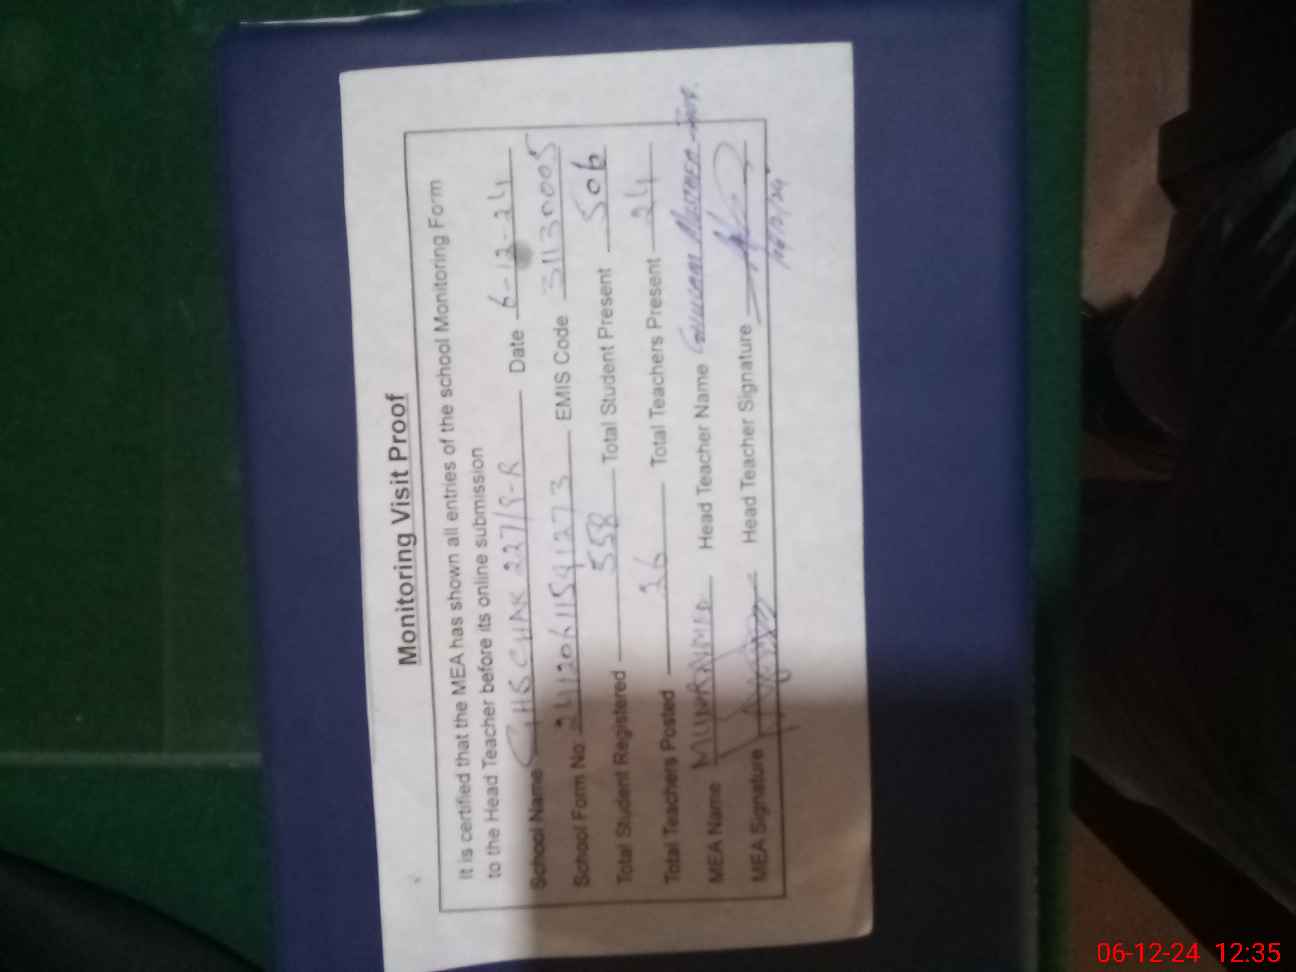 Monitoring Visit Proof
It is certified that the MEA has shown all entries of the school Monitoring Form
to the Head Teacher before its online submission
School Name GHS CHAK 227/9-R Date 6-12-24
School Form No: 24120611591273 EMIS Code 31130005
Total Student Registered 558 Total Student Present 506
Total Teachers Posted 26 Total Teachers Present 24
MEA Name MUNIR AHMED Head Teacher Name
MEA Signature Head Teacher Signature
06-12-24 12:35